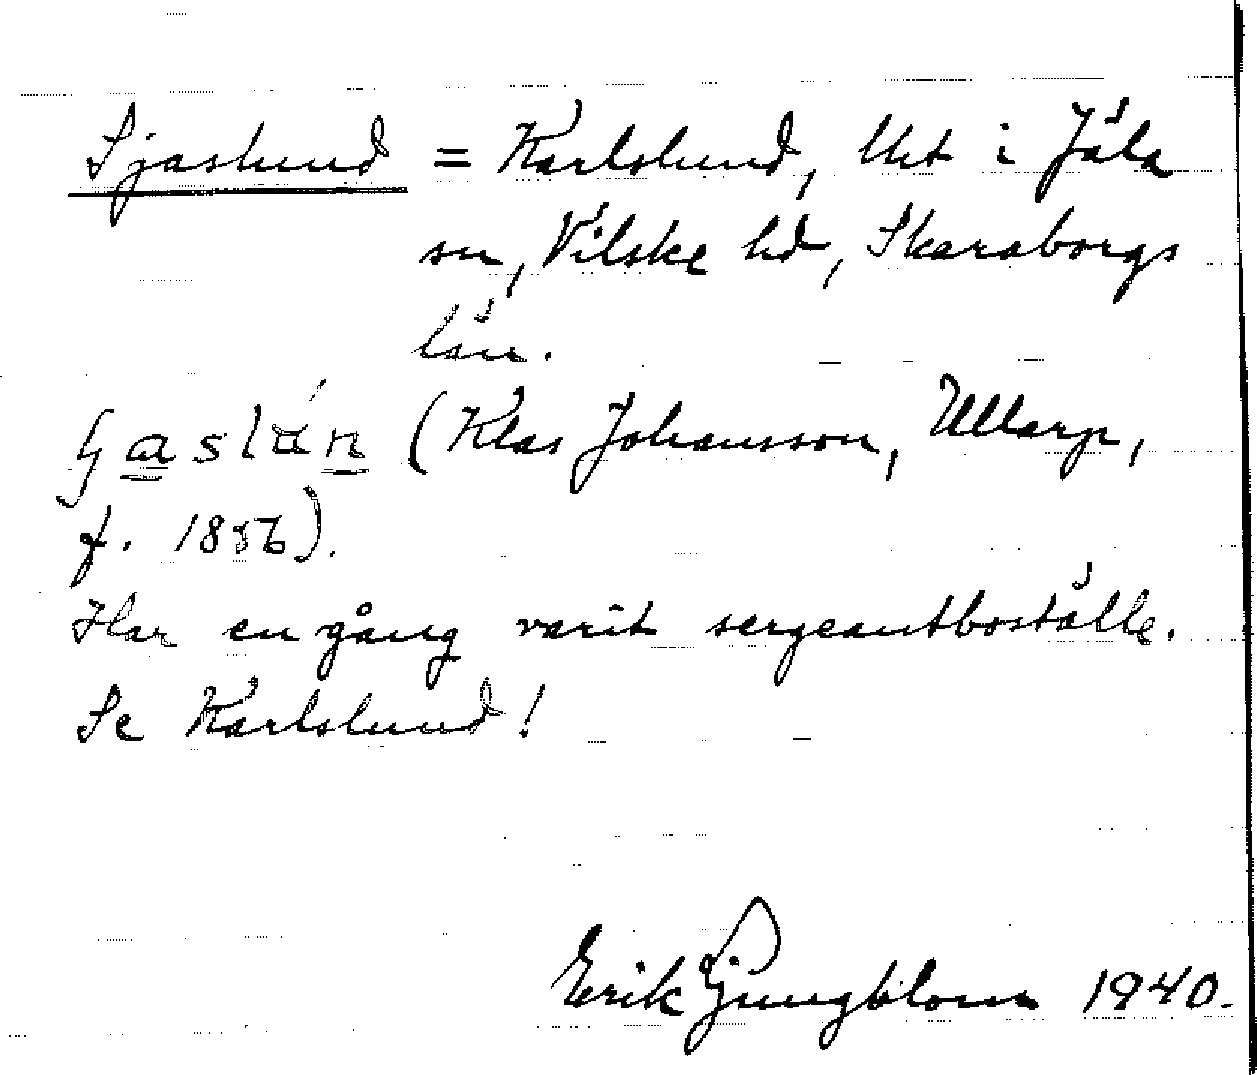 Sjaslund = Karlslund, lht i Jäla
sn, Vilske hd, Skaraborgs
län.
(Klas Johansson, Ullarp,
f. 1856).
Har en gång varit sergeantboställe.
Se Karlslund!
Erik Ljungblom 1940.